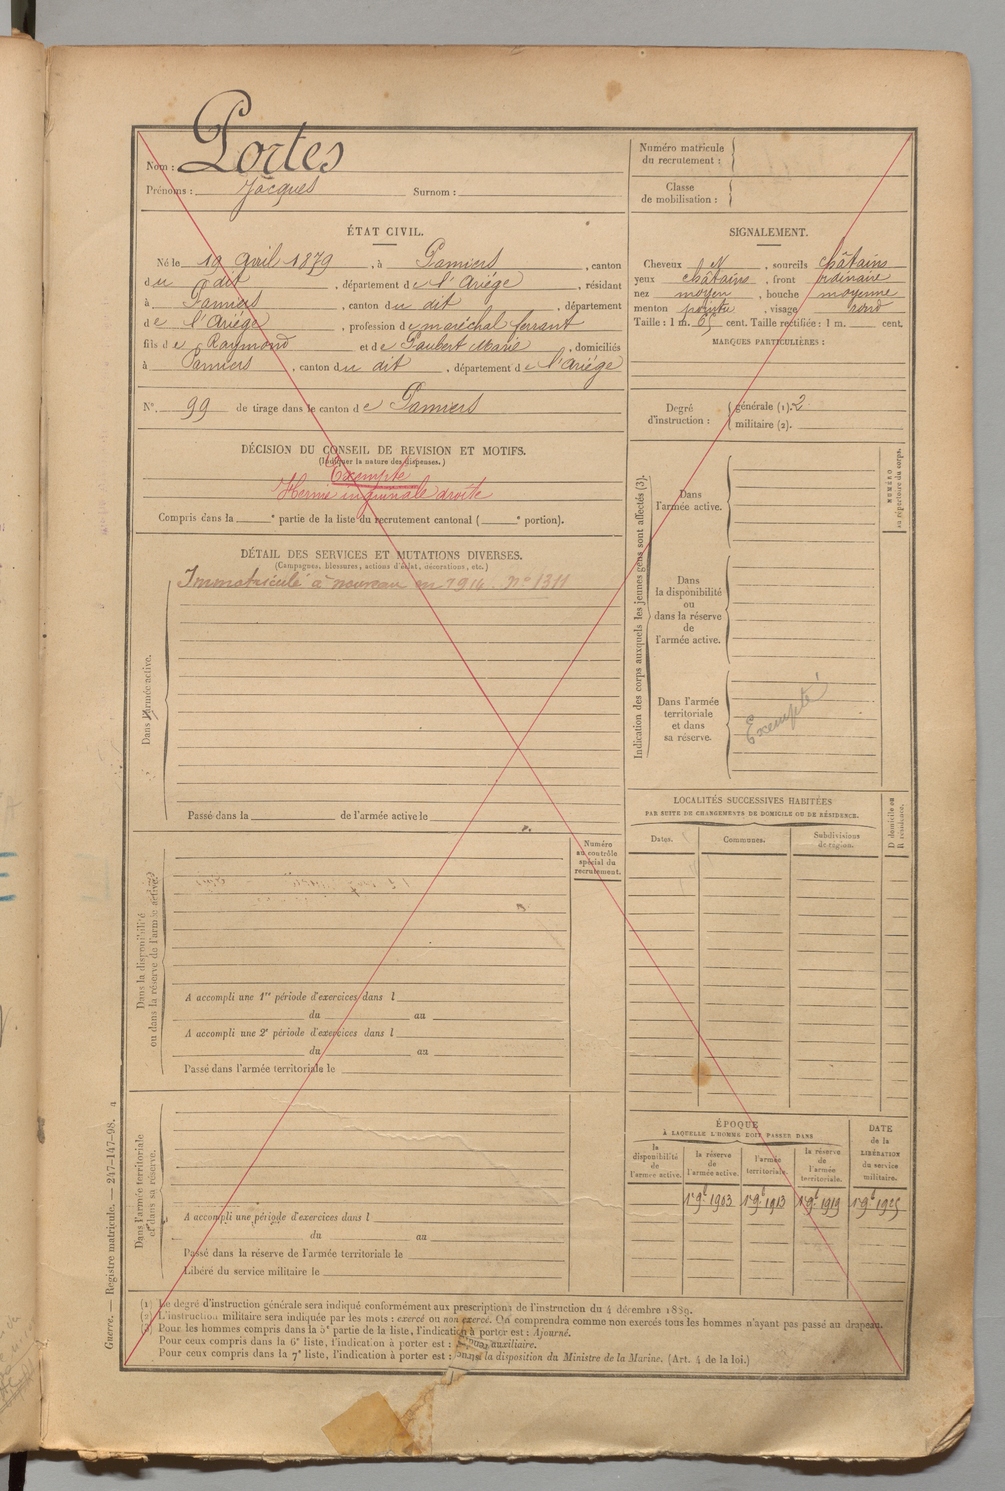 Nom : Portes
Prénoms : Jacques Surnom :
Numéro matricule
du recrutement :
Classe
de mobilisation :
ÉTAT CIVIL.
Né le 19 Avril 1879, à Pamiers, canton
du dit, département de l'Ariége, résidant
à Pamiers, canton du dit, département
de l'Ariége, profession de maréchal ferrant
fils de Raymond et de Marie, domiciliés
à Pamiers, canton du dit, département de l'Ariége
N° 99 de tirage dans le canton de Pamiers
SIGNALEMENT.
Cheveux N, sourcils châtains
yeux châtains, front ordinaire
nez moyen, bouche moyenne
menton pointu, visage rond
Taille : 1 m. 65 cent. Taille rectifiée : 1 m. cent.
MARQUES PARTICULIÈRES :
Degré
d'instruction :
générale (1). 2
militaire (2).
DÉCISION DU CONSEIL DE REVISION ET MOTIFS.
(Indiquer la nature des dispenses.)
Exempté
Hernie inguinale droite
Compris dans la e partie de la liste du recrutement cantonal ( e portion).
DÉTAIL DES SERVICES ET MUTATIONS DIVERSES.
(Campagnes, blessures, actions d'éclat, décorations, etc.)
Immatriculé à nouveau en 1914. N° 1311
Dans l'armée active.
Passé dans la de l'armée active le
Indication des corps auxquels les jeunes gens sont affectés (3).
NUMÉRO
au répertoire du corps.
Dans
l'armée active.
Dans
la disponibilité
ou
dans la réserve
de
l'armée active.
Dans l'armée
territoriale
et dans
sa réserve.
Exempté
LOCALITÉS SUCCESSIVES HABITÉES
PAR SUITE DE CHANGEMENTS DE DOMICILE OU DE RÉSIDENCE.
D domicile ou
R résidence.
Dates. Communes. Subdivisions
de région.
Numéro
au contrôle
spécial du
recrutement.
Dans la disponibilité
ou dans la réserve de l'armée active.
A accompli une 1re période d'exercices dans l
du au
A accompli une 2e période d'exercices dans l
du au
Passé dans l'armée territoriale le
Dans l'armée territoriale
et dans sa réserve.
A accompli une période d'exercices dans l
du au
Passé dans la réserve de l'armée territoriale le
Libéré du service militaire le
ÉPOQUE
À LAQUELLE L'HOMME DOIT PASSER DANS
la
disponibilité
de
l'armée active.
la réserve
de
l'armée active.
l'armée
territoriale.
la réserve
de
l'armée
territoriale.
DATE
de la
LIBÉRATION
du service
militaire.
1er 9bre 1903 1er 9bre 1913 1er 9bre 1919 1er 9bre 1925
(1) Le degré d'instruction générale sera indiqué conformément aux prescriptions de l'instruction du 4 décembre 1889.
(2) L'instruction militaire sera indiquée par les mots : exercé ou non exercé. On comprendra comme non exercés tous les hommes n'ayant pas passé au drapeau.
(3) Pour les hommes compris dans la 5e partie de la liste, l'indication à porter est : Ajourné.
Pour ceux compris dans la 6e liste, l'indication à porter est : auxiliaire.
Pour ceux compris dans la 7e liste, l'indication à porter est : la disposition du Ministre de la Marine. (Art. 4 de la loi.)
Guerre. — Registre matricule. — 247-147-98.